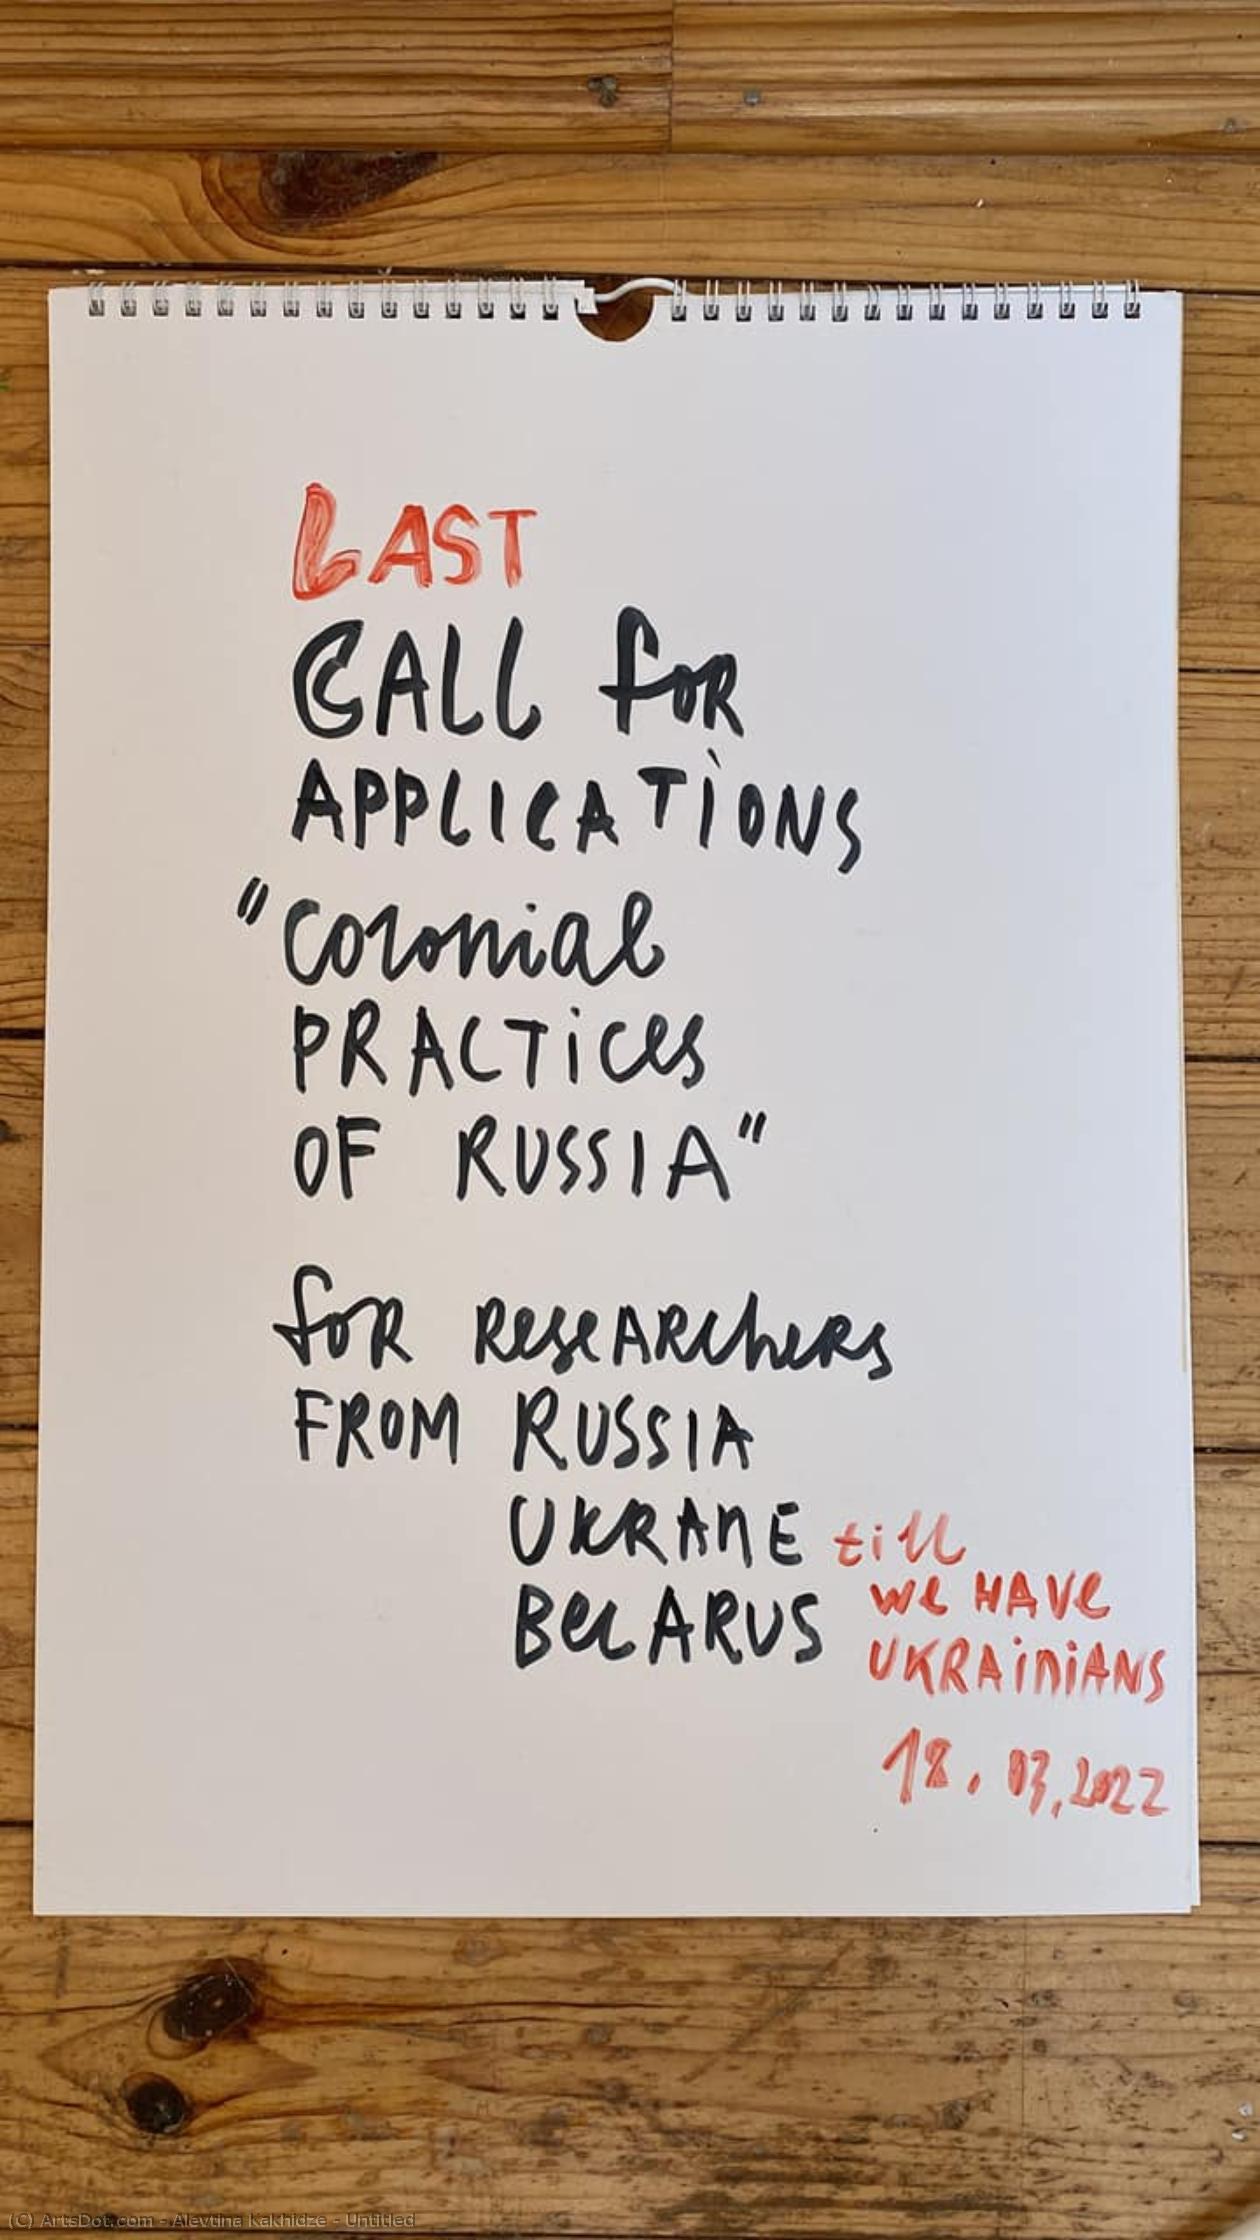 LAST
CALL for
APPLICATIONS
"Colonial
PRACTices
OF RUSSIA"
for ReseARcheRs
FROM RUSSIA
UKRANE till
we HAVe
BeLARUS
UKRAiniANS
18.03,2022
(C) ArtsDot.com - Alevtina Kakhidze - Untitled